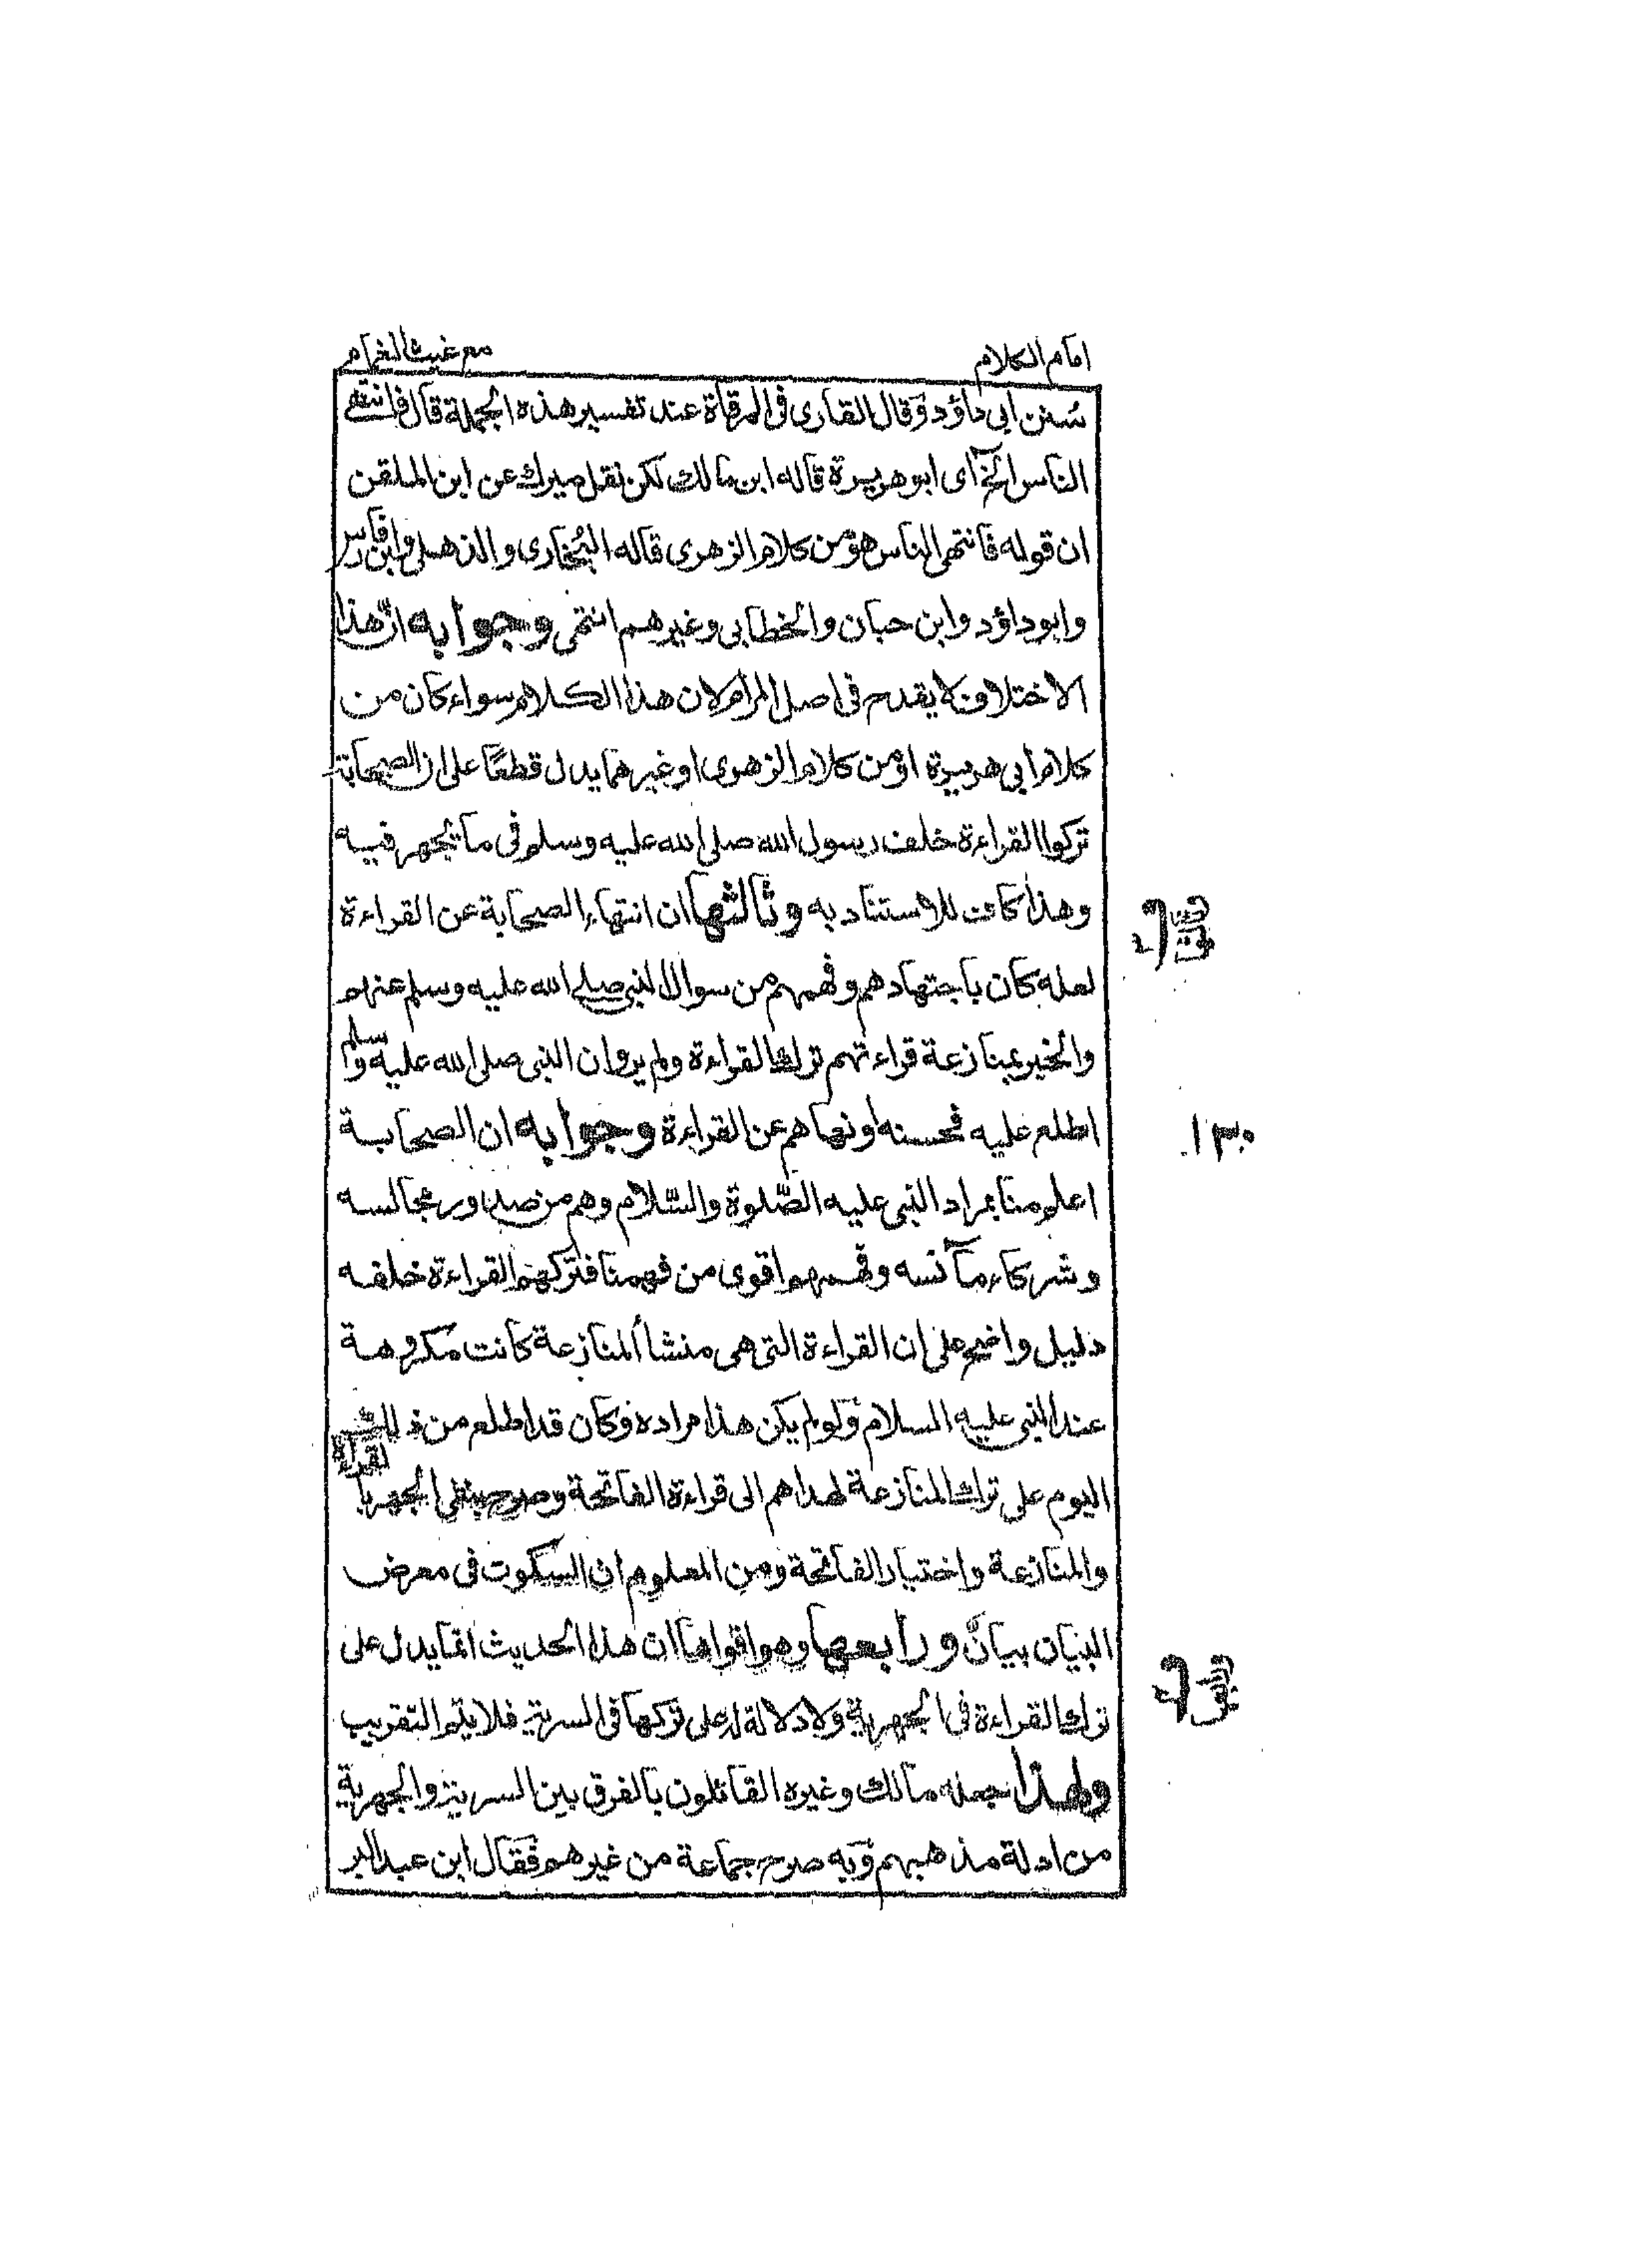 امام الكلام
مع غيث الغمام
سُنن ابى داؤد وقال القارى فى المرقاة عند تفسير هذه الجملة قال فانتهى
الناس الخ اى ابو هريرة قاله ابن مالك لكن نقل ميرك عن ابن الملقن
ان قوله فانتهى الناس هو من كلام الزهرى قاله البُخارى والذهلى وابن فارس
وابوداؤد وابن حبان والخطابى وغيرهم انتهى وجوابه انّ هذا
الاختلاف لا يقدح فى اصل المرام لان هذا الكلام سواء كان من
كلام ابى هريرة او من كلام الزهرى او غيرهما يدل قطعًا على ان الصحابة
تركوا القراءة خلف رسول الله صلى الله عليه وسلم فى ما يجهر فيه
وهذا كاف للاستناد به وثالثها ان انتهاء الصحابة عن القراءة
لعله كان باجتهادهم وفهمهم من سوال النبى صلى الله عليه وسلم عنهم
والخبر بمنازعة قراءتهم ترك القراءة ولم يرو ان النبى صلى الله عليه وسلم
اطلع عليه فحسنه او نهاهم عن القراءة وجوابه ان الصحابة
اعلم منا بمراد النبى عليه الصّلوة والسّلام وهم من صدور مجالسه
وشركاء مآنسه وفهمهم اقوى من فهمنا فتركهم القراءة خلفه
دليل واضح على ان القراءة التى هى منشأ المنازعة كانت مكروهة
عند النبى عليه السلام ولو لم يكن هذا مراده وكان قد اطلع من ذلك
اليوم على ترك المنازعة لهداهم الى قراءة الفاتحة وصرح بنفى الجهر بالقراءة
والمنازعة واختيار الفاتحة ومن المعلوم ان السكوت فى معرض
البيان بيان ورابعها وهو اقواها ان هذا الحديث انما يدل على
ترك القراءة فى الجهرية ولا دلالة له على تركها فى السرية فلا يتم التقريب
ولهذا جعله مالك وغيره القائلون بالفرق بين السرية والجهرية
من ادلة مذهبهم وبه صرح جماعة من غيرهم فقال ابن عبد البر
١٣٠